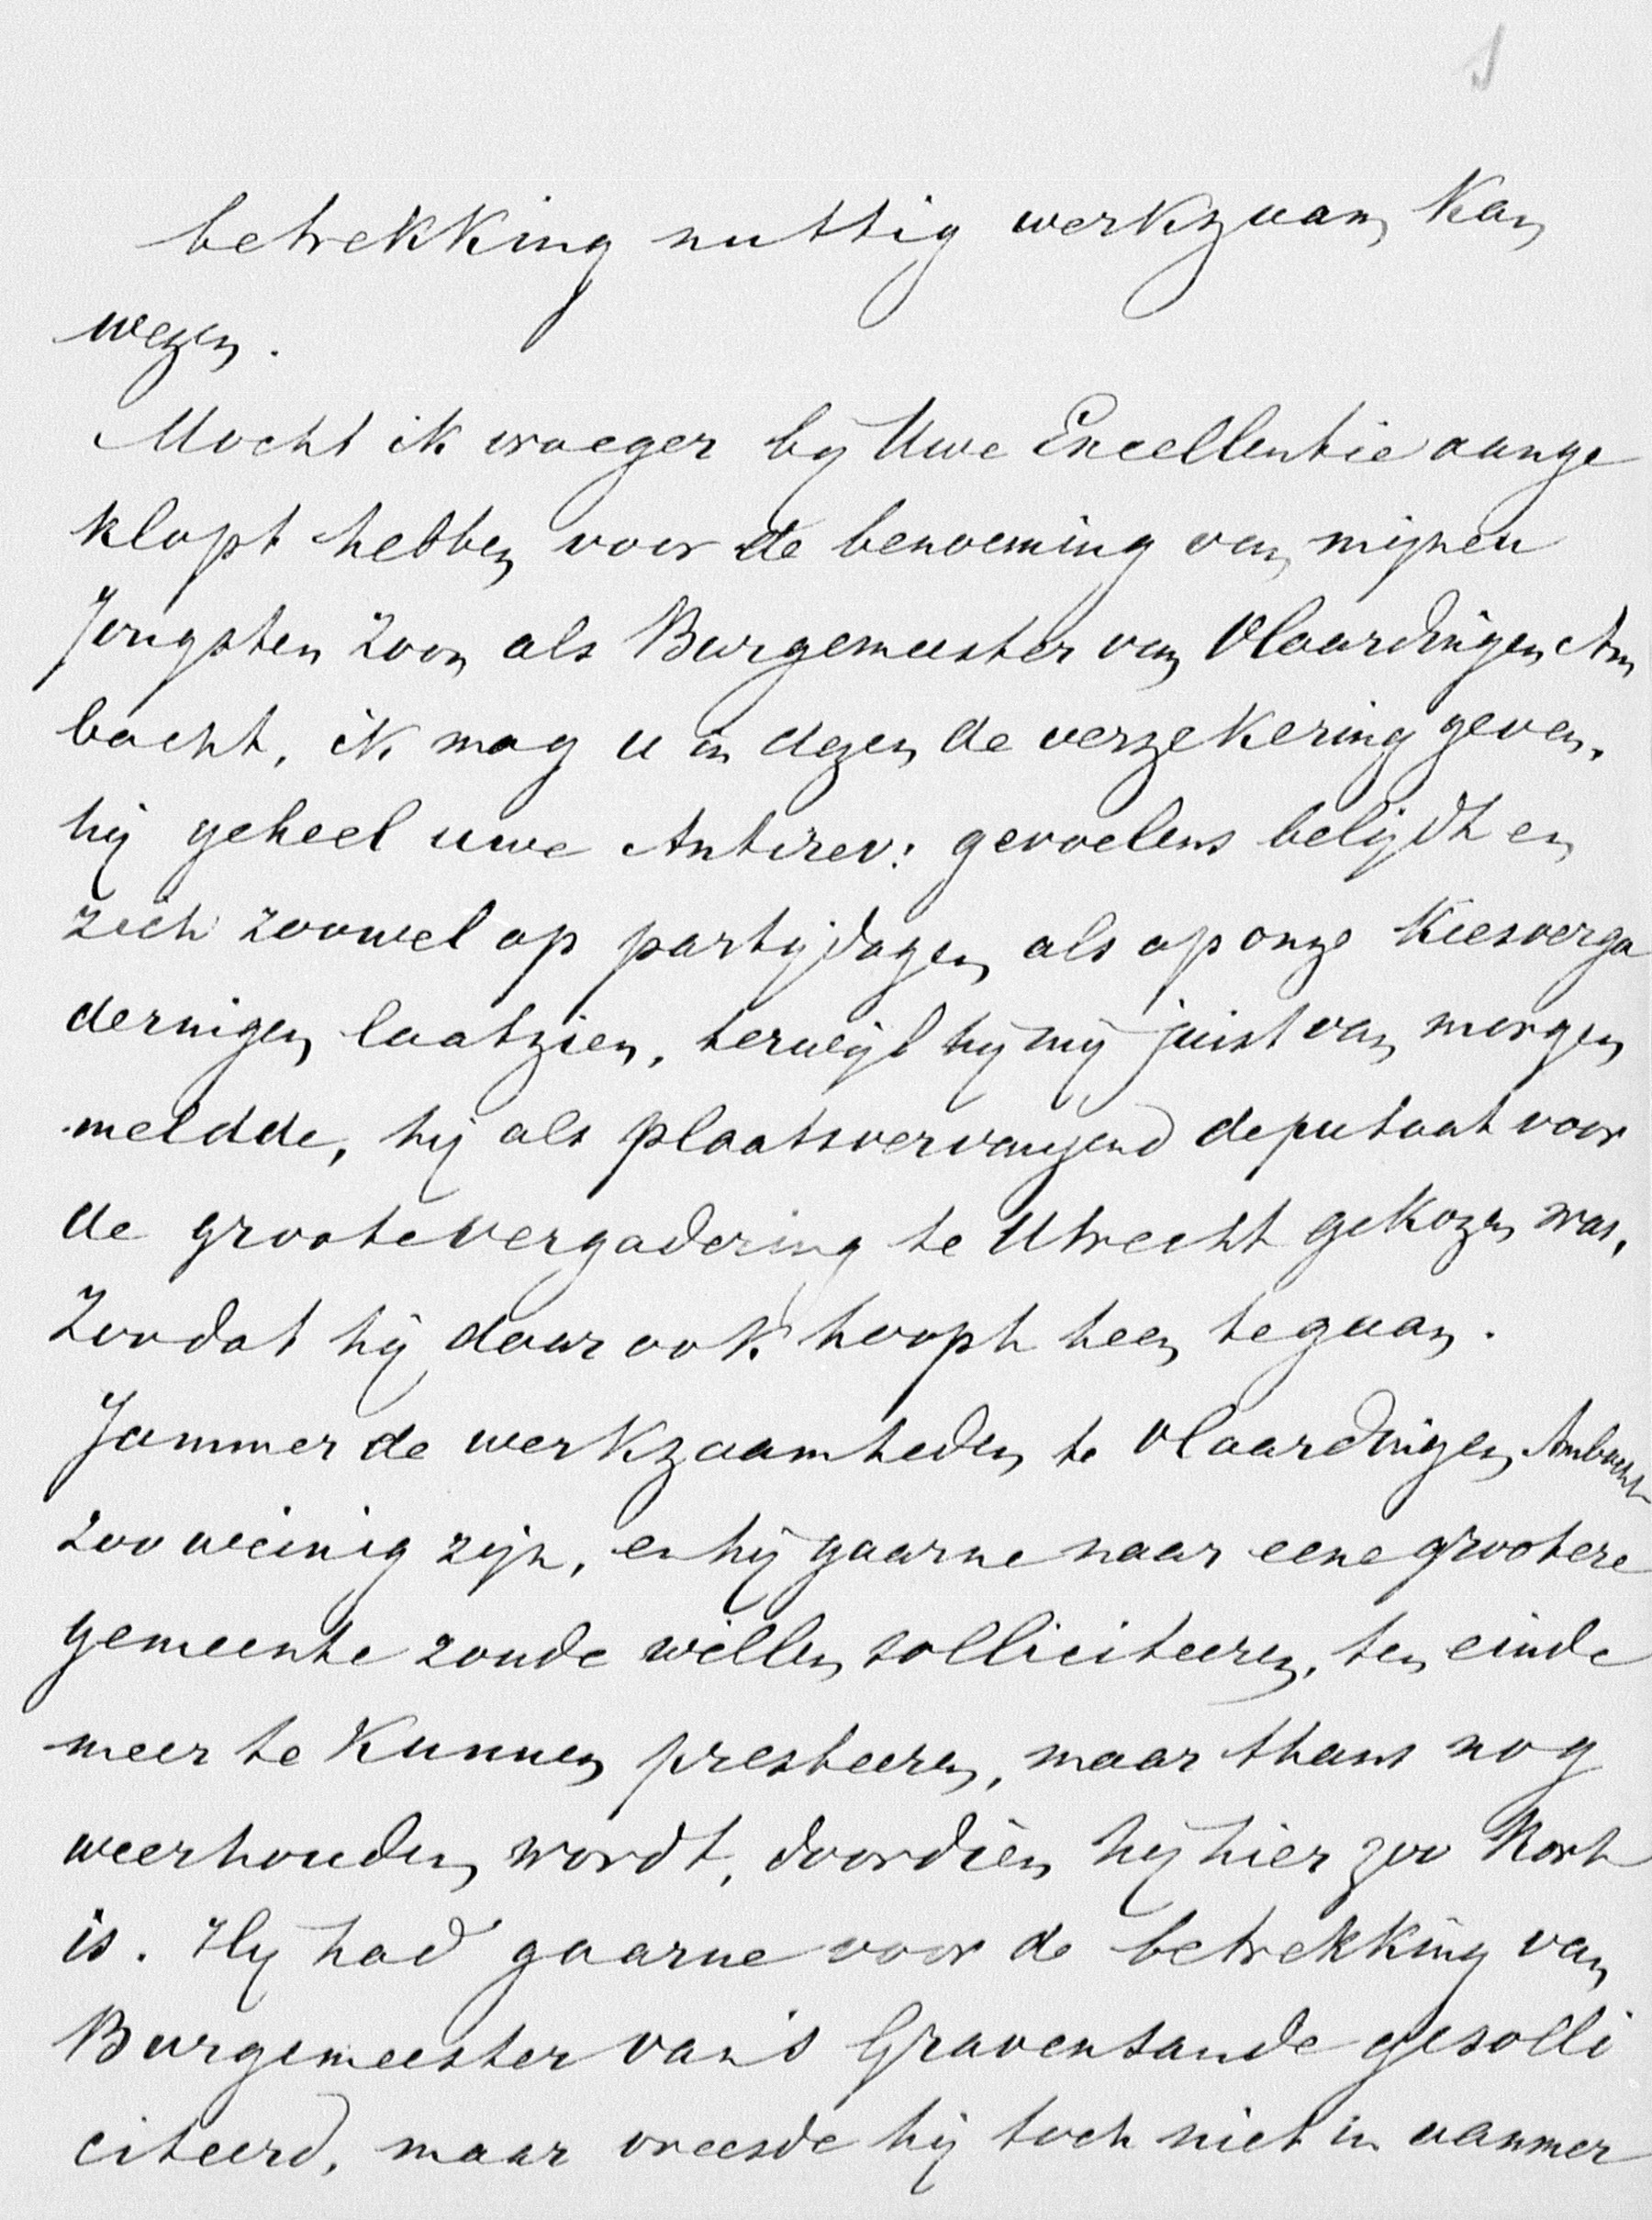 betrekking nuttig werkzaam kan
wezen.
Mocht ik vroeger bij Uwe Excellentie aange
klopt hebben voor de benoeming van mijnen
Jongsten Zoon als Burgemeester van Vlaardingen Am
bacht, ik mag u in dezen de verzekering geven,
hij geheel uwe Antirev: gevoelens belijdt en
zich zoowel op partijdagen als op onze Kiesverga
deringen laat zien, terwijl hij mij juist van morgen
meldde, hij als plaatsvervangend deputaat voor
de groote vergadering te Utrecht gekozen was,
Zoodat hij daar ook hoopt heen te gaan.
Jammer de werkzaamheden te Vlaardingen Ambacht
zoo weinig zijn, en hij gaarne naar eene grootere
gemeente zoude willen solliciteeren, ten einde
meer te kunnen presteeren, maar thans nog
weerhouden wordt, doordien hij hier zoo kort
is. Hij had gaarne voor de betrekking van
Burgemeester van 's Gravensande gesolli
citeerd, maar vreesde hij toch niet in aanmer